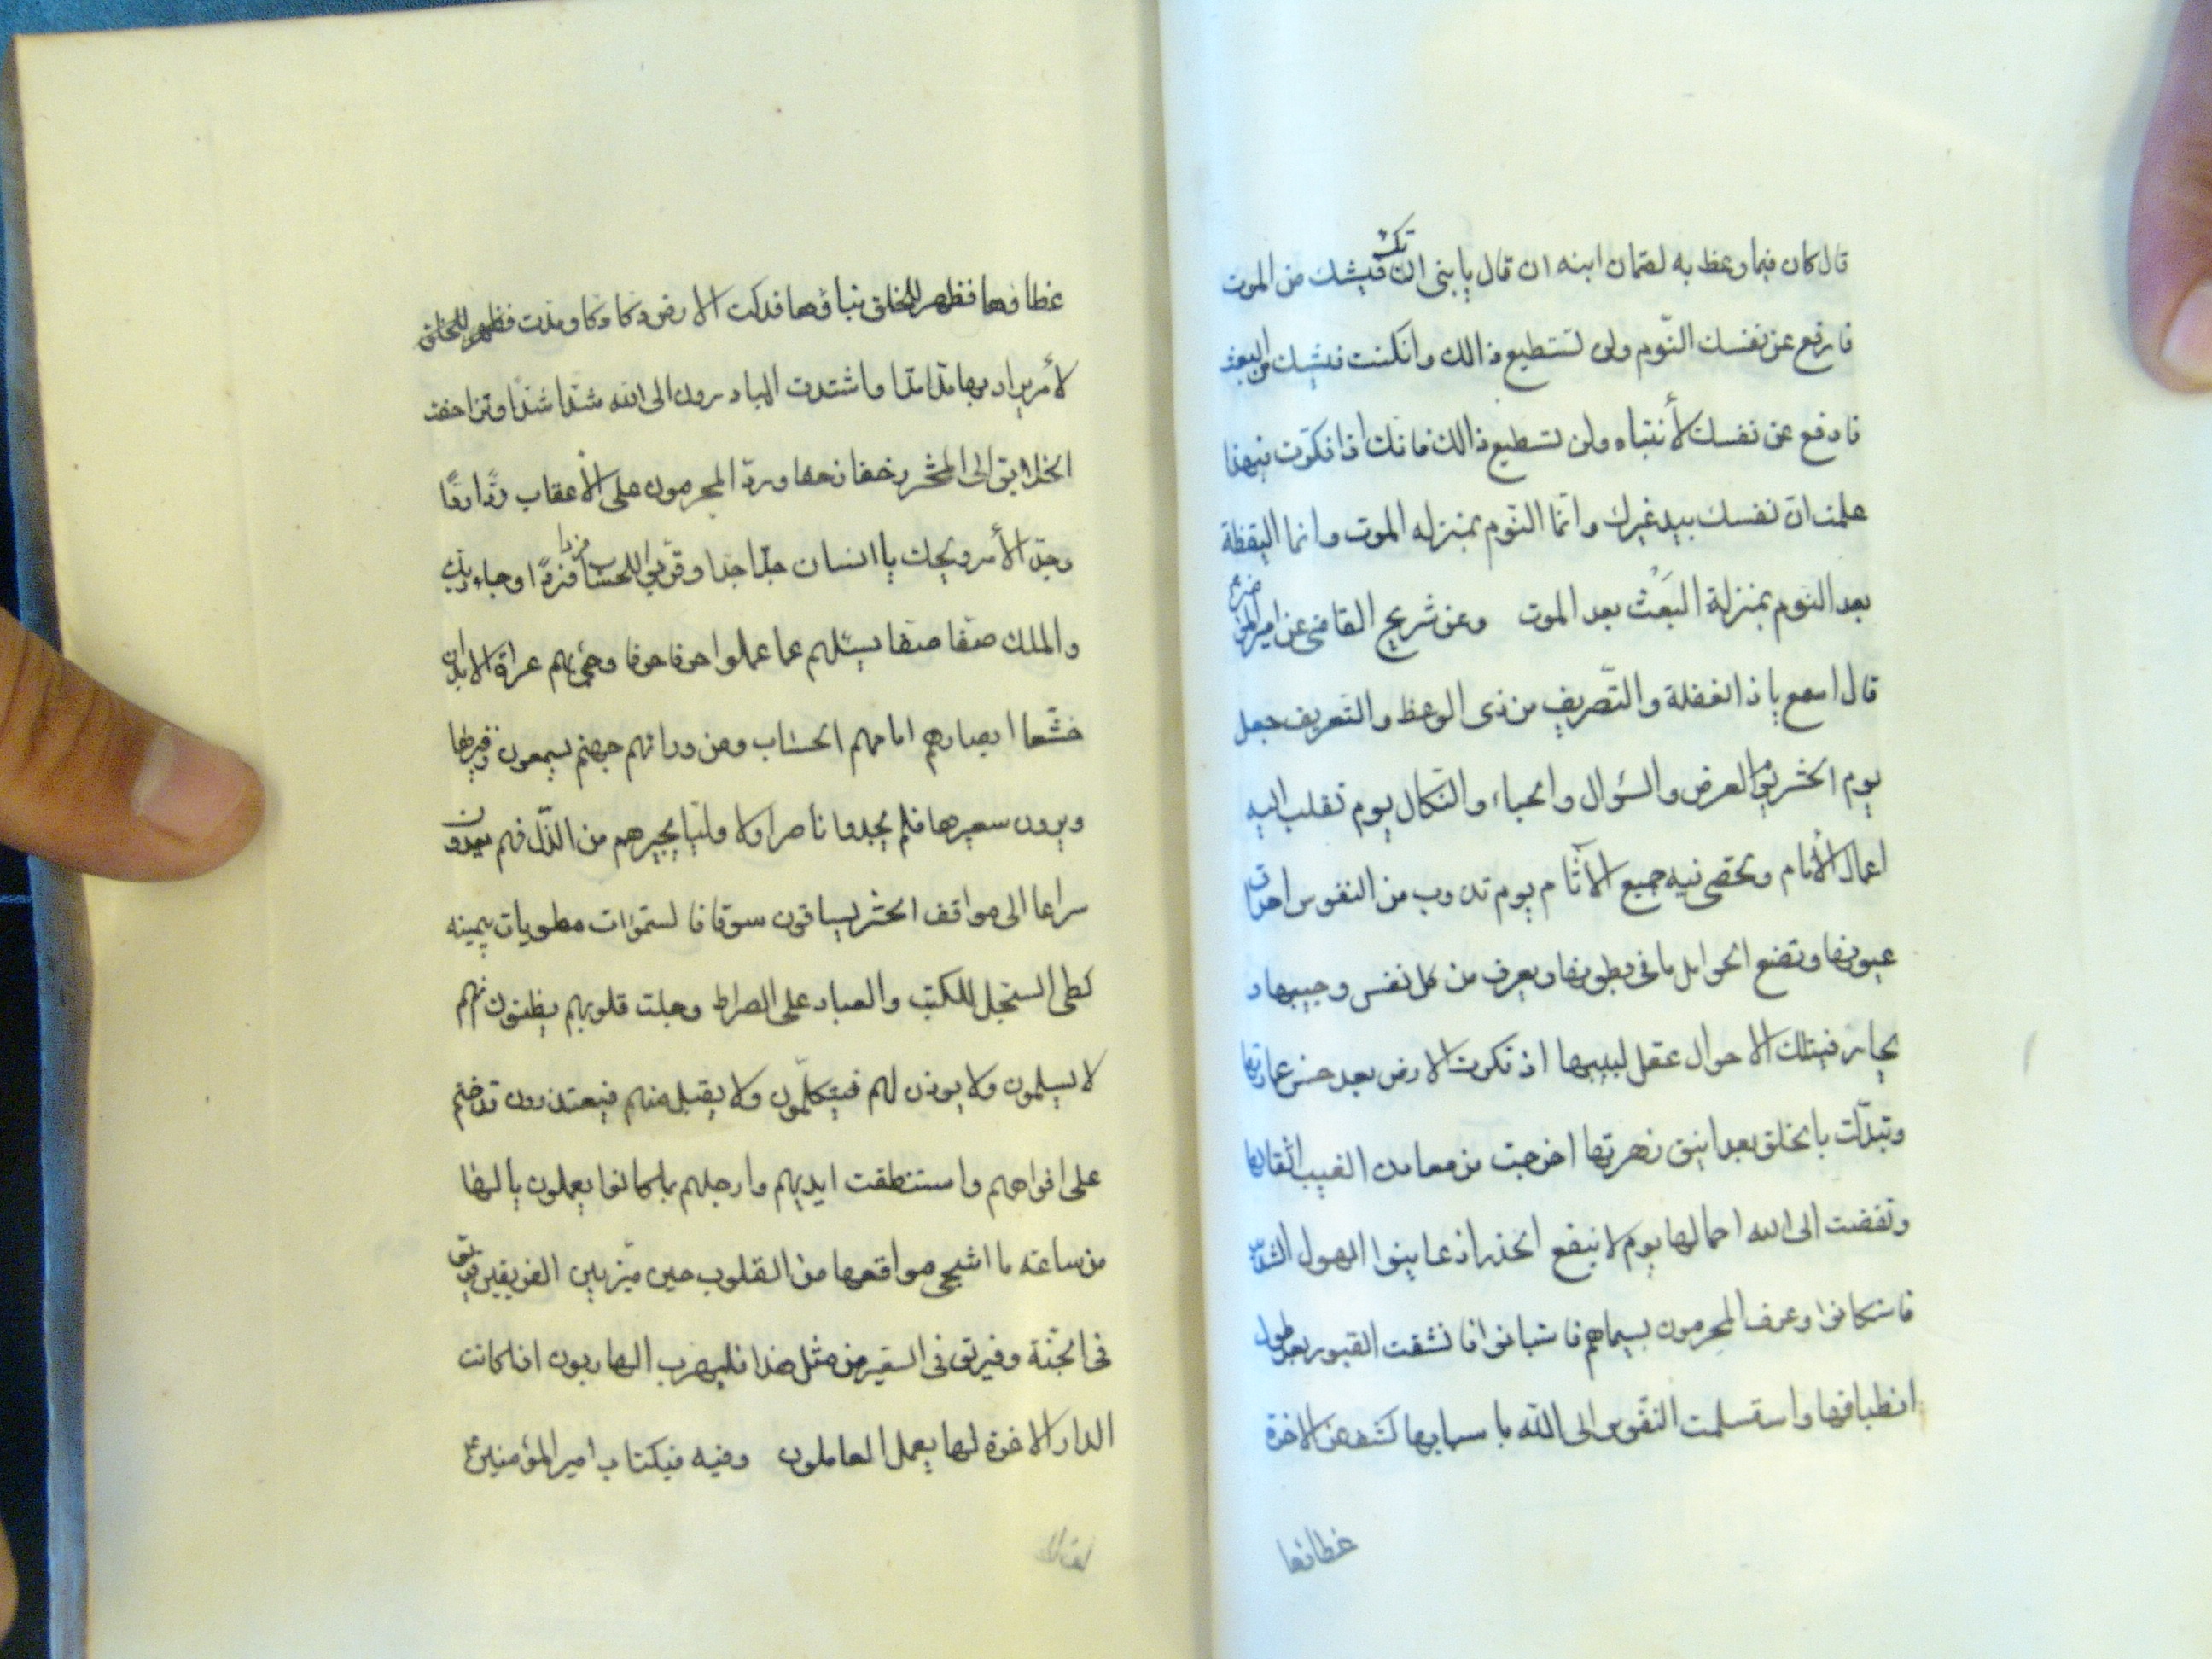 قال كان فيما وعظ به لقمان ابنه ان قال يا بنى ان تك فيشك من الموت
فارفع عن نفسك النّوم ولن تستطيع ذالك وانكنت فيشك من البعث
فادفع عن نفسك لأنتباه ولن تسطيع ذالك فانك اذا فكرت فيهذا
علمت ان نفسك بيد غيرك وانّما النّوم بمنزله الموت وانما اليقظة
بعد النوم بمنزلة البَعْث بعد الموت وعن شريح القاضى عن امير المؤمنين ع
قال اسمع يا ذا الغفلة والتّصريف من ذى الوعظ والتعريف جعل
يوم الحشر يوم العرض والسؤال والحباء والنّكال يوم تقلب اليه
اعمال الأنام وتحصى فيه جميع الآثام يوم تذوب من النفوس احداق
عيونها وتضع الحوامل ما فى بطونها ويعرف من كل نفس وحبيبها و
يحار فيتلك الاحوال عقل لبيبها اذ تكرت الارض بعد حسن عمارتها
وتبدّلت بالخلق بعد انيق زهرتها اخرجت من معادن الغيب اثقالها
ونفضت الى الله احمالها يوم لا ينفع الحذر اذ عاينوا الهول الشديد
فاستكانوا وعرف المجرمون بسيماهم فاستبانوا فانشقت القبور بعد طول
انطباقها واستسلمت النفوس الى الله باسبابها كشف عن الاخرة
غطائها
غطاؤها فظهر للخلق نباؤها فدكت الارض دكا دكا ومدّت فظهر للخلق
لأمر يراد بها مدّا مدّا واشتدت المبادرون الى الله شدّا شدّا وتزاحفت
الخلايق الى المحشر زحفا زحفا وردّ المجرمون على الأعقاب ردًّا ردًّا
وجدّ الأمر ويحك يا انسان جدّا جدا وقربوا للحساب فردًا فردا وجاء ربك
والملك صفّا صفّا يسئلهم عما عملوا حرفا حرفا وجئ بهم عراة الابدان
خشّعا ابصارهم امامهم الحساب ومن ورائهم جهنم يسمعون زفيرها
ويرون سعيرها فلم يجدوا ناصرا ولا وليّا يجيرهم من الذّل فهم يعدون
سراعا الى مواقف الحشر يساقون سوقا فالسّموات مطويات بيمينه
كطى السّجل للكتب والعباد على الصراط وجلت قلوبهم يظنون انهم
لا يسلمون ولا يوذن لهم فيتكلّمون ولا يقبل منهم فيعتذرون قد ختم
على افواههم واستنطقت ايديهم وارجلهم بما كانوا يعملون يا لها
من ساعة ما اشجى مواقعها من القلوب حين ميّز بين الفريقين فريق
فى الجنّة وفريق فى السّعير من مثل هذا فليهرب الهاربون اذا كانت
الدار الاخرة لها يعمل العاملون وفيه فيكتاب امير المؤمنين ع